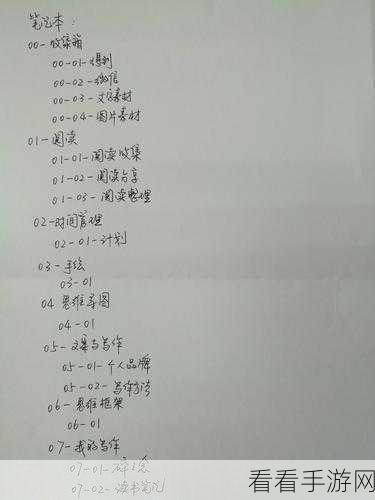 笔记本:
00-收集箱
00-01-得到
00-02-微信
00-03-文字素材
00-04-图片素材
01-阅读
01-01-阅读收集
01-02-阅读分享
01-03-阅读整理
02-时间管理
02-01-计划
03-手绘
03-01
04 思维导图
04-01
05-文案与写作
05-01-个人品牌
05-02-写作方法
06-思维框架
06-01
07-我的写作
07-01-碎念
07-02-读书笔记
看看手游网
www.kkx.net